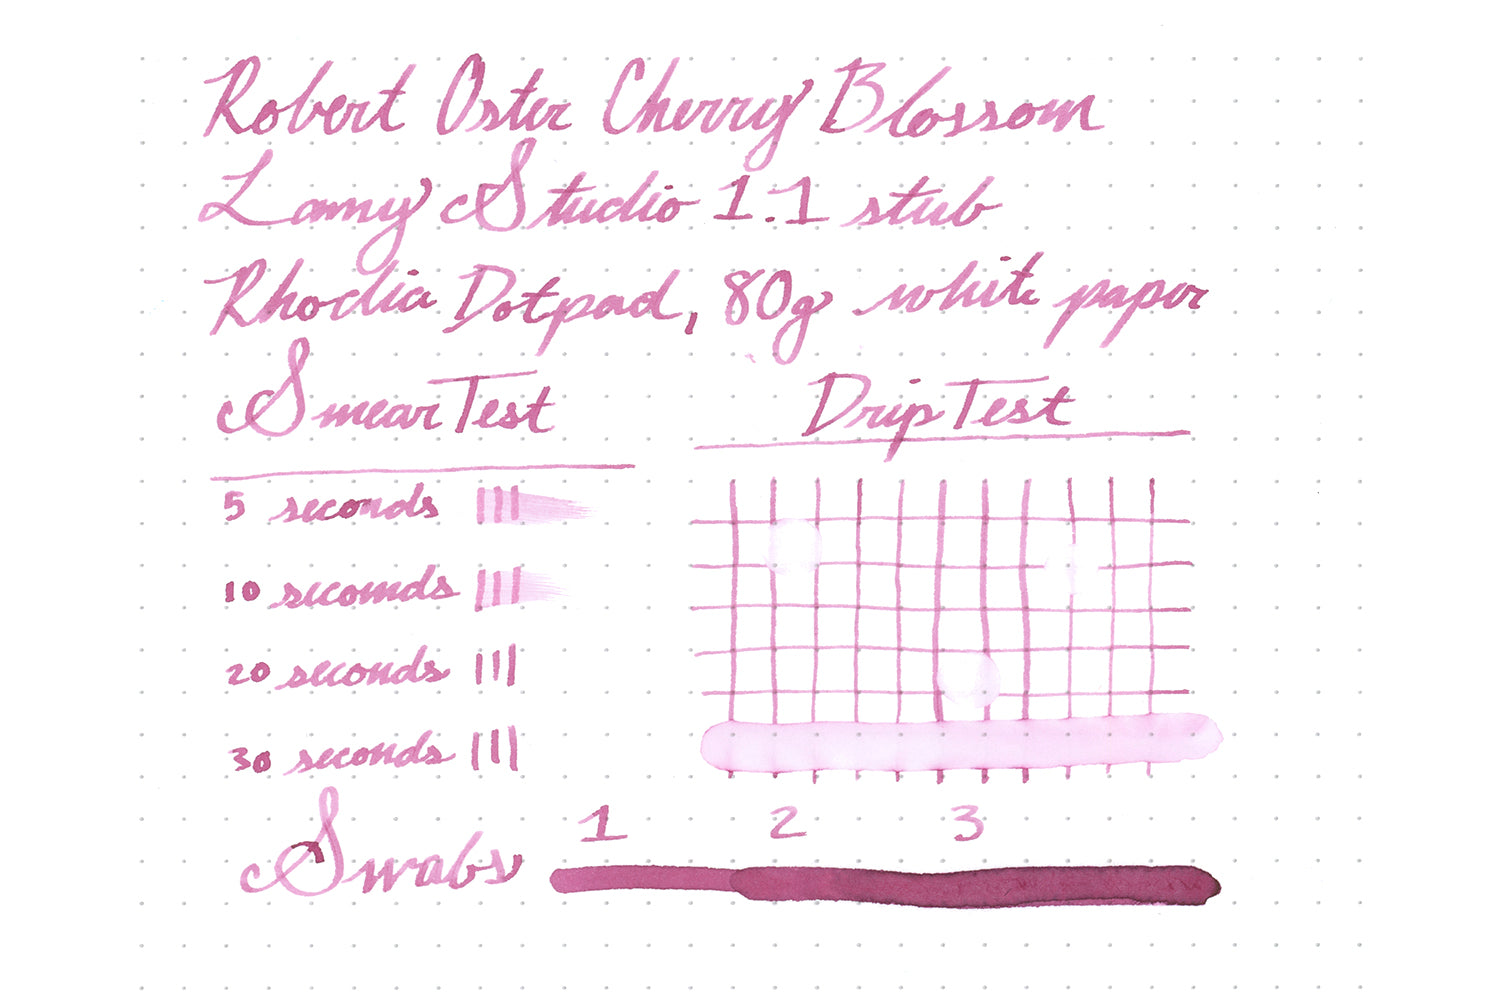 Robert Oster Cherry Blossom
Lamy Studio 1.1 stub
Rhodia Dotpad, 80g white paper
Smear Test
Drip Test
5 seconds
10 seconds
20 seconds
30 seconds
Swabs
1 2 3